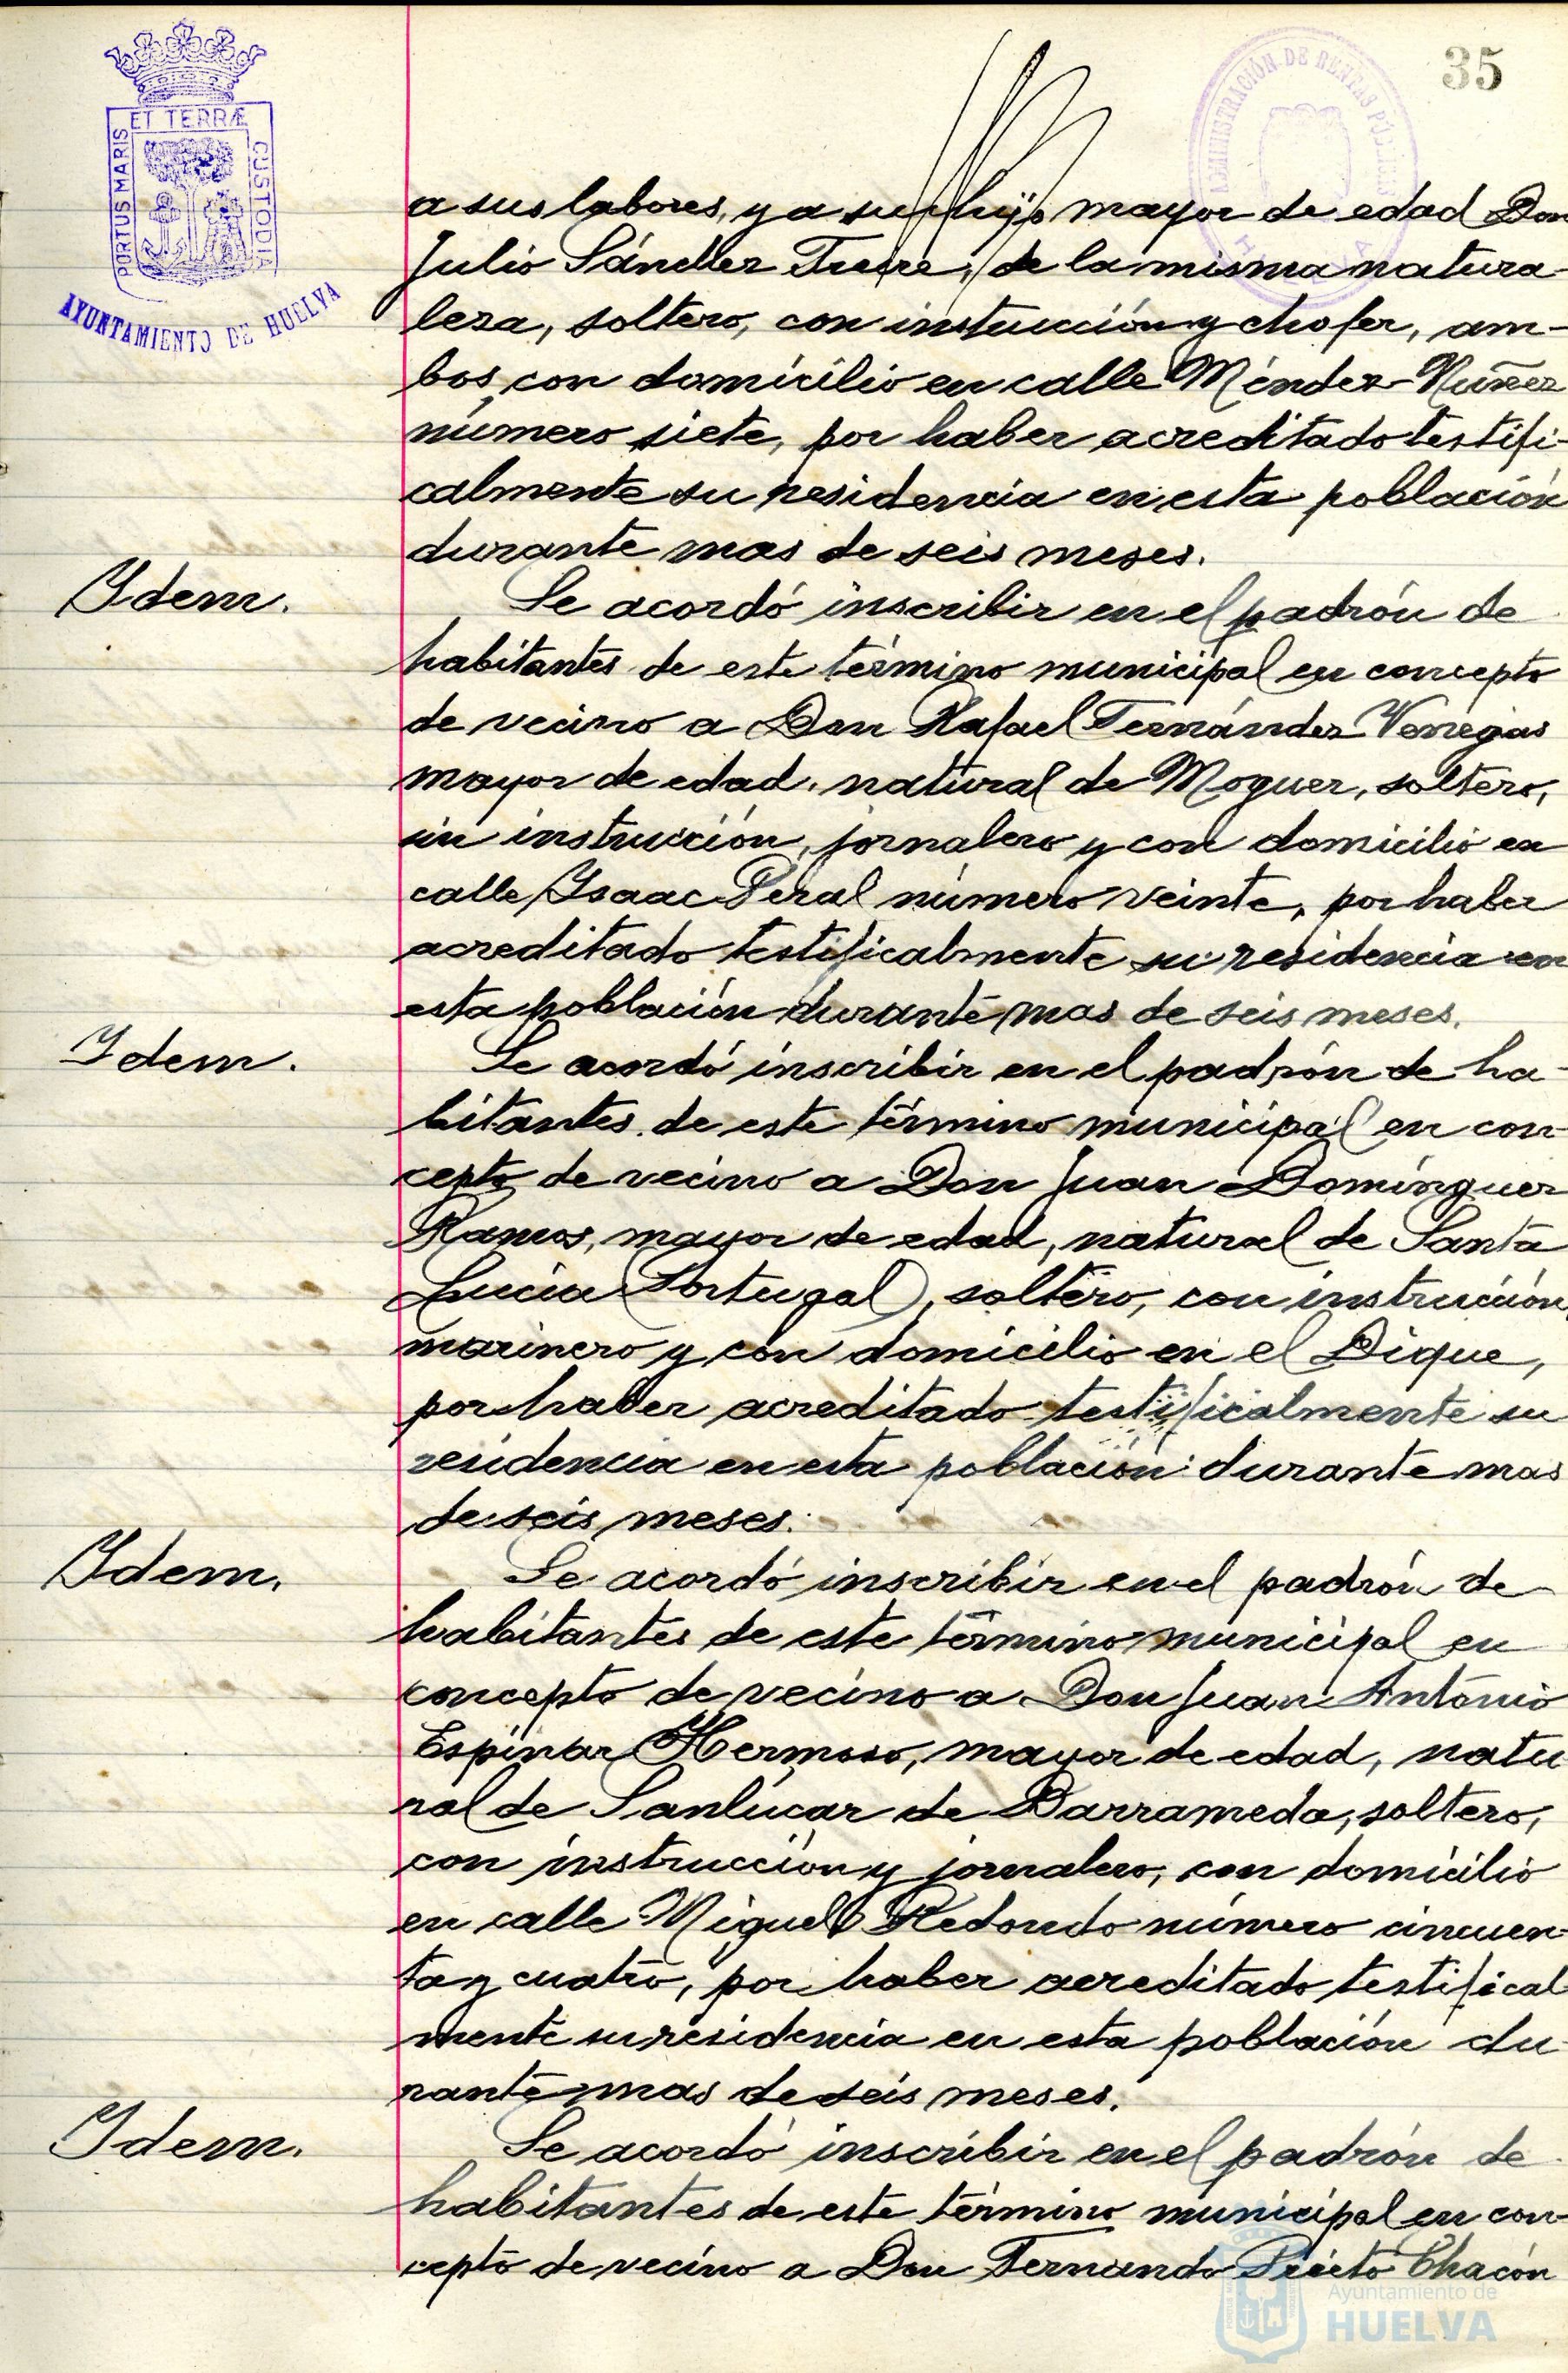 35
ET TERRÆ
PORTUS MARIS
CUSTODIA
AYUNTAMIENTO DE HUELVA
ADMINISTRACIÓN DE RENTAS PÚBLICAS
a sus labores, y a su hijo mayor de edad Don
Julio Sánchez Freire, de la misma natura-
leza, soltero, con instrucción y chofer, am-
bos, con domicilio en calle Méndez-Nuñez
número siete, por haber acreditado testifi-
calmente su residencia en esta población
durante mas de seis meses.
Idem.
Se acordó inscribir en el padrón de
habitantes de este término municipal en concepto
de vecino a Don Rafael Fernández Venegas
mayor de edad, natural de Moguer, soltero,
sin instrucción, jornalero y con domicilio en
calle Isaac Peral número veinte, por haber
acreditado testificalmente su residencia en
esta población durante mas de seis meses.
Idem.
Se acordó inscribir en el padrón de ha-
bitantes de este término municipal en con-
cepto de vecino a Don Juan Domínguez
Ramos, mayor de edad, natural de Santa
Lucia (Portugal), soltero, con instrucción,
marinero y con domicilio en el Dique,
por haber acreditado testificalmente su
residencia en esta población durante mas
de seis meses.
Idem.
Se acordó inscribir en el padrón de
habitantes de este término municipal en
concepto de vecino a Don Juan Antonio
Espinar Hermoso, mayor de edad, natu-
ral de Sanlúcar de Barrameda, soltero,
con instrucción y jornalero, con domicilio
en calle Miguel Redondo número cincuen-
ta y cuatro, por haber acreditado testifical
mente su residencia en esta población du-
rante mas de seis meses.
Idem.
Se acordó inscribir en el padrón de
habitantes de este término municipal en con-
cepto de vecino a Don Fernando Prieto Chacón
Ayuntamiento de
HUELVA